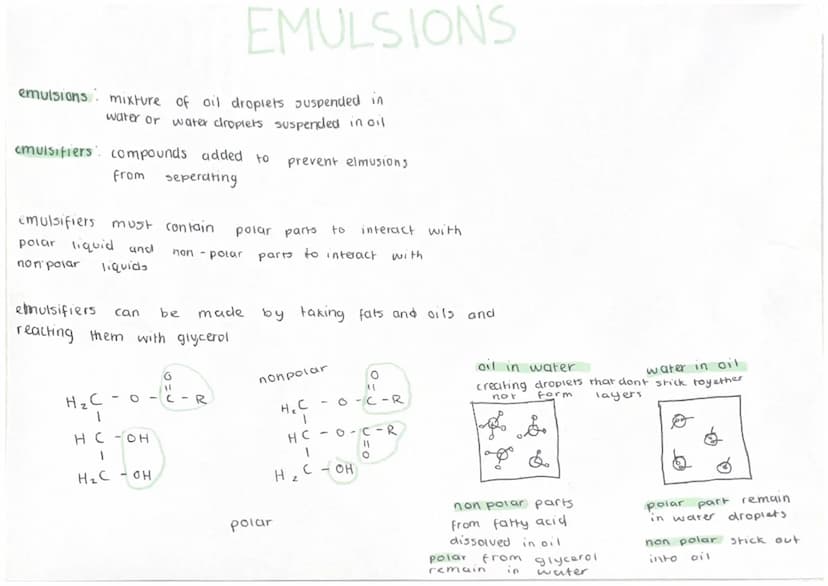 EMULSIONS
emulsions: mixture of oil droplets suspended in
water or water droplets suspended in oil
emulsifiers: compounds added to prevent elmusions
from seperating
emulsifiers must contain polar parts to interact with
polar liquid and non-polar parts to inteact with
nonpolar liquids
elmulsifiers can be made by taking fats and oils and
reacting them with glycerol
O
H₂C - O - C - R
HC - OH
H₂C - OH
nonpolar
O
H₂C - O - C - R
HC - O - C - R
O
H₂C - OH
polar
oil in water water in oil
creating droplets that dont stick together
not form layers
non polar parts
from fatty acid
dissolved in oil
polar from glycerol
remain in water
polar part remain
in water droplets
non polar stick out
into oil